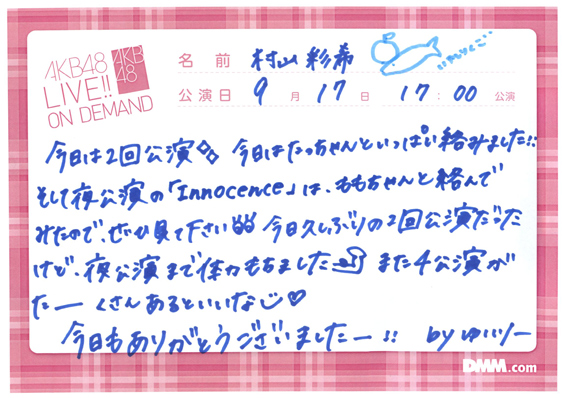 AKB48
LIVE!!
ON DEMAND
AKB
48
名前 村山彩希
公演日 9月17日 17:00公演
今日は2回公演 今日はたっちゃんといっぱい絡みました!!
そして夜公演の「Innocence」は、ももちゃんと絡んで
みたので、ぜひ見て下さい 今日久しぶりの2回公演だった
けど、夜公演まで体力もちました また4公演が
たーくさんあるといいなじ♡
今日もありがとうございましたー!! by ゆいりー
DMM.com